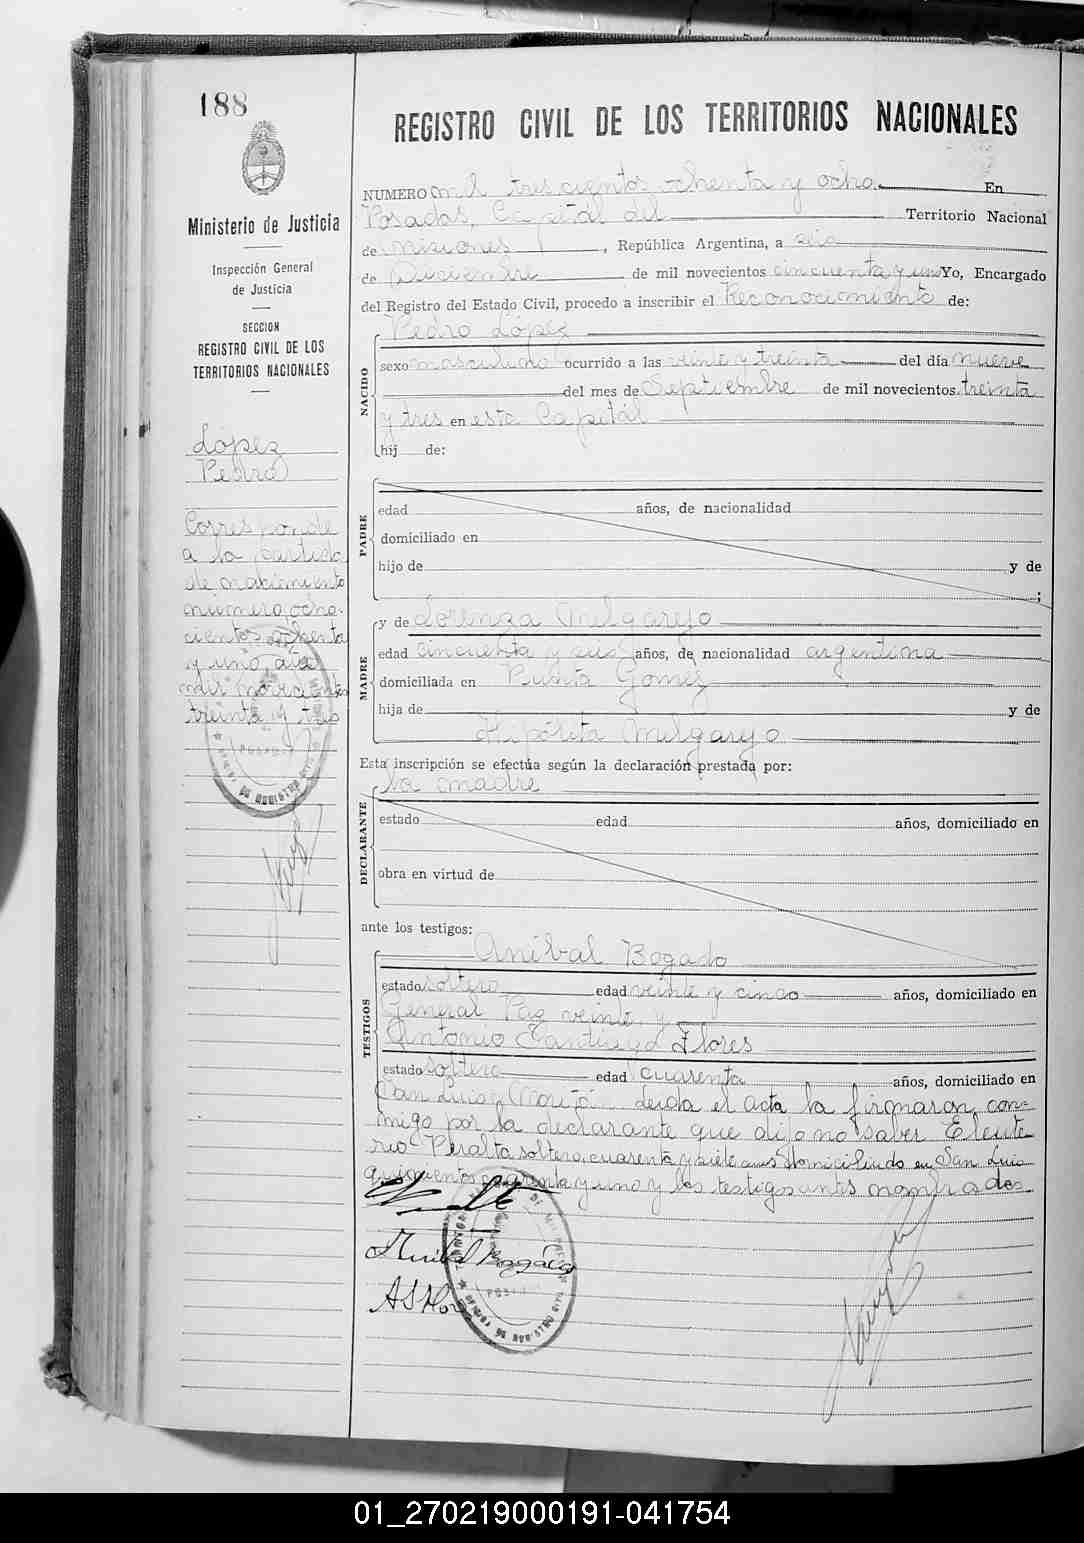 188
REGISTRO CIVIL DE LOS TERRITORIOS NACIONALES
Ministerio de Justicia
Inspección General
de Justicia
SECCION
REGISTRO CIVIL DE LOS
TERRITORIOS NACIONALES
López
Pedro
Corresponde
a la partida
de nacimiento
número ocho-
cientos ochenta
y uno año
mil novecientos
treinta y tres
NUMERO mil trescientos ochenta y ocho En
Posadas, Capital del Territorio Nacional
de Misiones, República Argentina, a seis
de Diciembre de mil novecientos cincuenta y uno Yo, Encargado
del Registro del Estado Civil, procedo a inscribir el Reconocimiento de:
NACIDO
Pedro López
sexo masculino ocurrido a las veinte y treinta del día nueve
del mes de Septiembre de mil novecientos treinta
y tres en esta Capital
hij de:
PADRE
edad años, de nacionalidad
domiciliado en
hijo de y de
;
MADRE
y de Lorenza Melgarejo
edad cincuenta y seis años, de nacionalidad argentina
domiciliada en Punta Gomez
hija de y de
Hipólita Melgarejo
Esta inscripción se efectúa según la declaración prestada por:
DECLARANTE
la madre
estado edad años, domiciliado en
obra en virtud de
ante los testigos:
TESTIGOS
Anibal Bogado
estado soltero edad veinte y cinco años, domiciliado en
General Paz veinte y
Antonio Flores
estado soltero edad cuarenta años, domiciliado en
San Luis y leida el acta la firmaron con-
migo por la declarante que dijo no saber Eleute-
rio Peralta soltero, cuarenta y siete años domiciliado en San Luis
quinientos y uno y los testigos antes nombrados
01_270219000191-041754